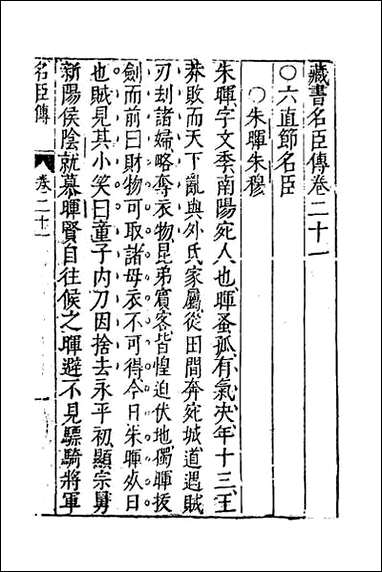 藏書名臣傳卷二十一
○六直節名臣
○朱暉朱穆
朱暉字文季南陽宛人也暉蚤孤有氣決年十三王
莽敗而天下亂與外氏家屬從田間奔宛城道遇賊
刃刦諸婦略奪衣物昆弟賓客皆惶迫伏地獨暉拔
劍而前曰財物可取諸母衣不可得今日朱暉死日
也賊見其小笑曰童子内刀因捨去永平初顯宗舅
新陽侯陰就慕暉賢自往候之暉避不見驃騎將軍
名臣傳 卷二十一 一